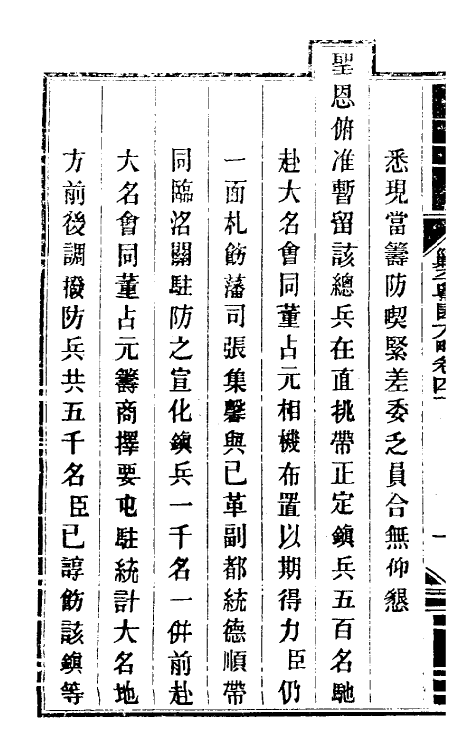 悉現當籌防喫緊差委乏員合無仰懇
聖恩俯准暫留該總兵在直挑帶正定鎮兵五百名馳
赴大名會同董占元相機布置以期得力臣仍
一面札飭藩司張集馨與已革副都統德順帶
同臨洺關駐防之宣化鎮兵一千名一併前赴
大名會同董占元籌商擇要屯駐統計大名地
方前後調撥防兵共五千名臣已諄飭該鎮等